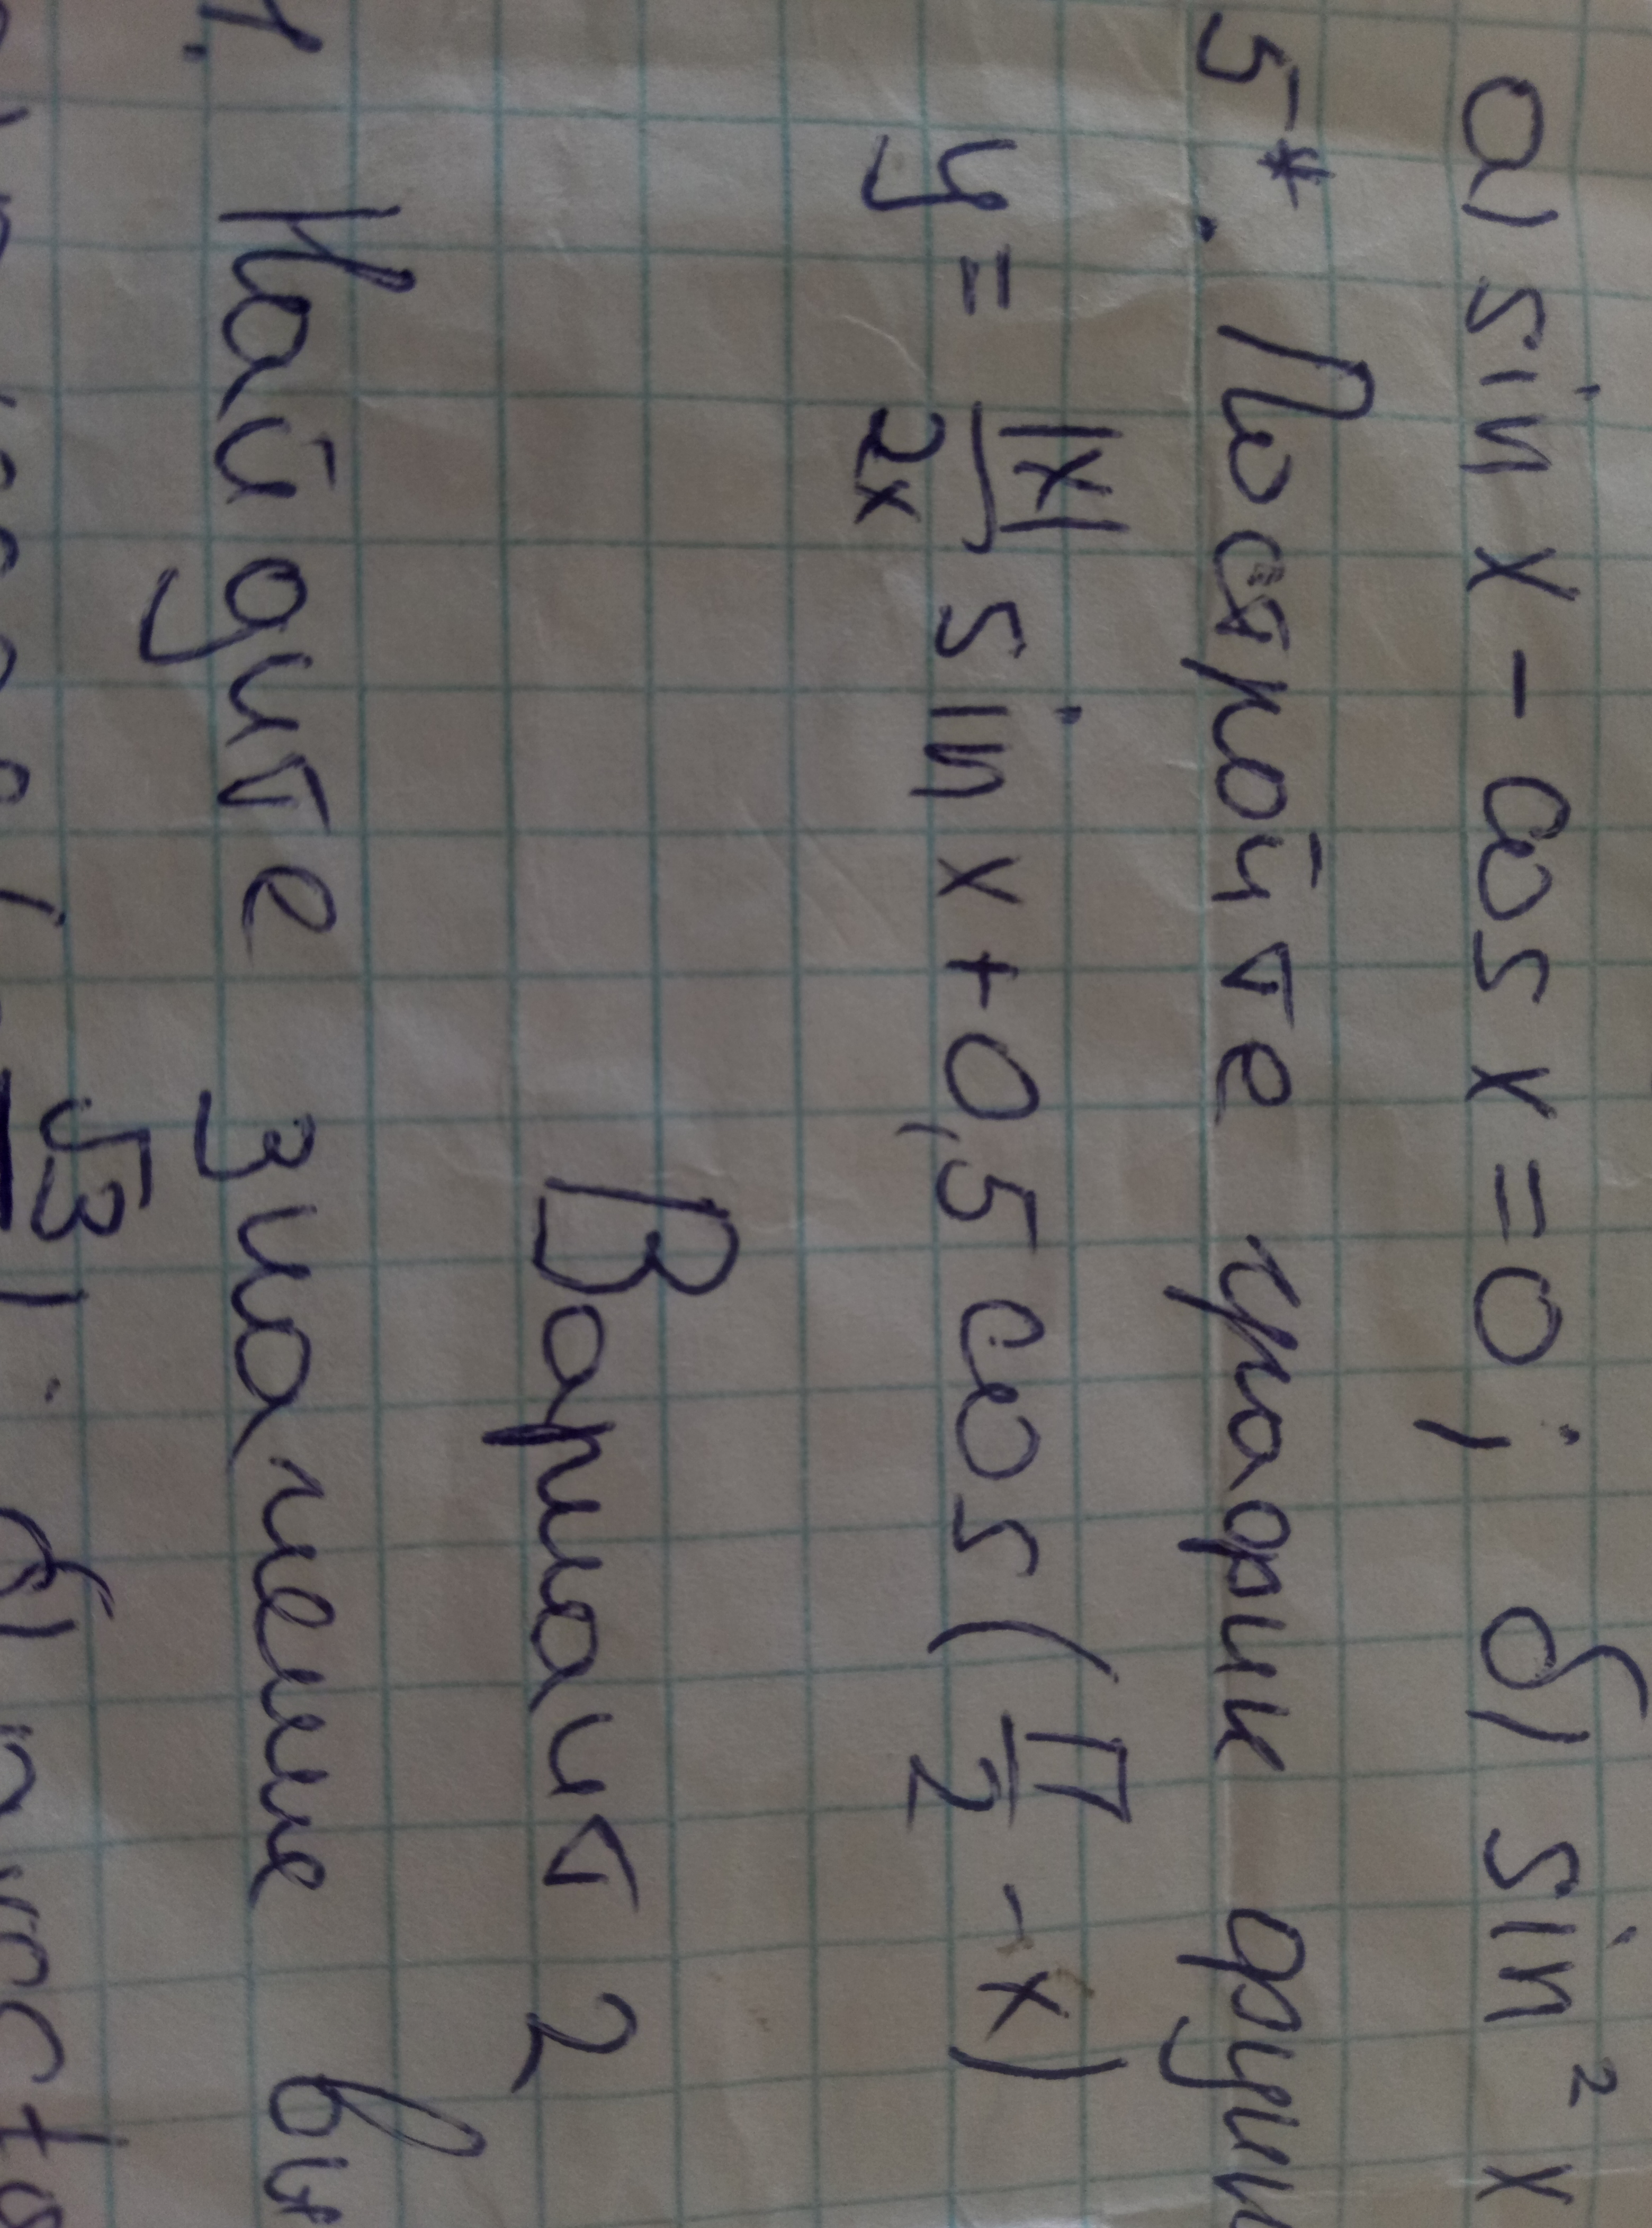 а) sin x - cos x = 0; б) sin² x
5*. Постройте график функ
y = |x|/2x sin x + 0,5 cos(π/2 - x)
Вариант 2
1. Найдите значение вы
√3